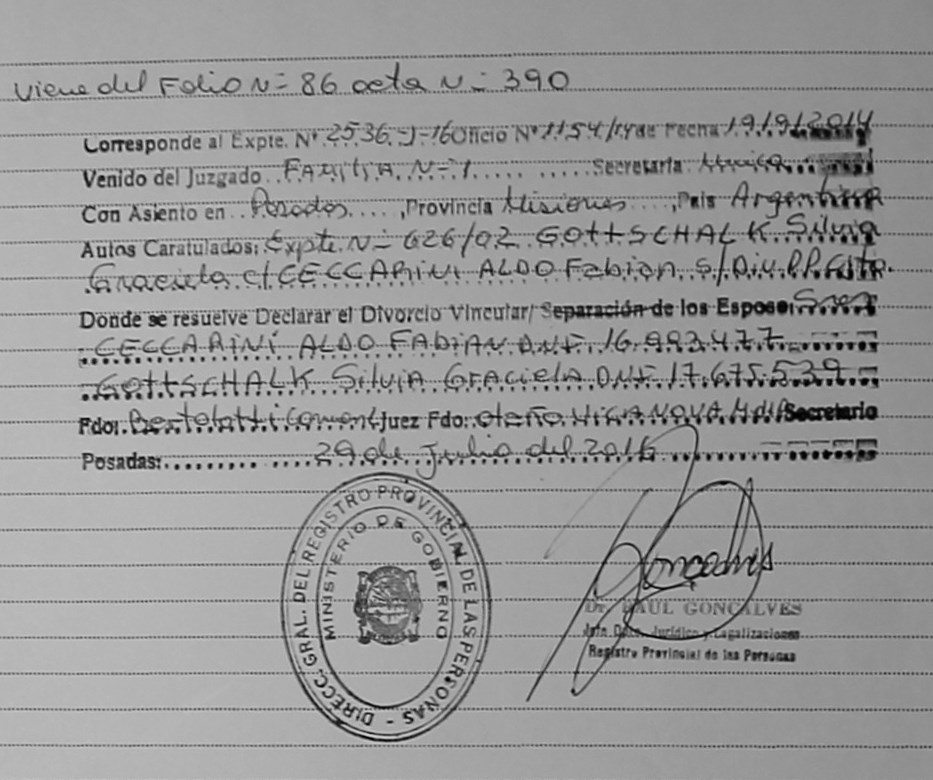 Viene del Folio N= 86 acta N= 390
Corresponde al Expte. Nº 2536-J-16 Oficio Nº 1154/14 de Fecha 19/9/2014
Venido del Juzgado FAMILIA N=1 Secretaría Unica
Con Asiento en Posadas, Provincia Misiones, País Argentina
Autos Caratulados: Expte. N= 626/02 GOTTSCHALK Silvia
Graciela c/CECCARINI ALDO Fabian S/Div.
Donde se resuelve Declarar el Divorcio Vincular/ Separación de los Esposos
CECCARINI ALDO FABIAN DNI 16.993.477
GOTTSCHALK Silvia GRACIELA DNI 17.675.539
Fdo: Juez Fdo: Secretario
Posadas: 29 de Julio del 2016
DIRECC. GRAL. DEL REGISTRO PROVINCIAL DE LAS PERSONAS -
MINISTERIO DE GOBIERNO
Goncalves
Dr. RAUL GONCALVES
Jefe Dpto. Jurídico y Legalizaciones
Registro Provincial de las Personas